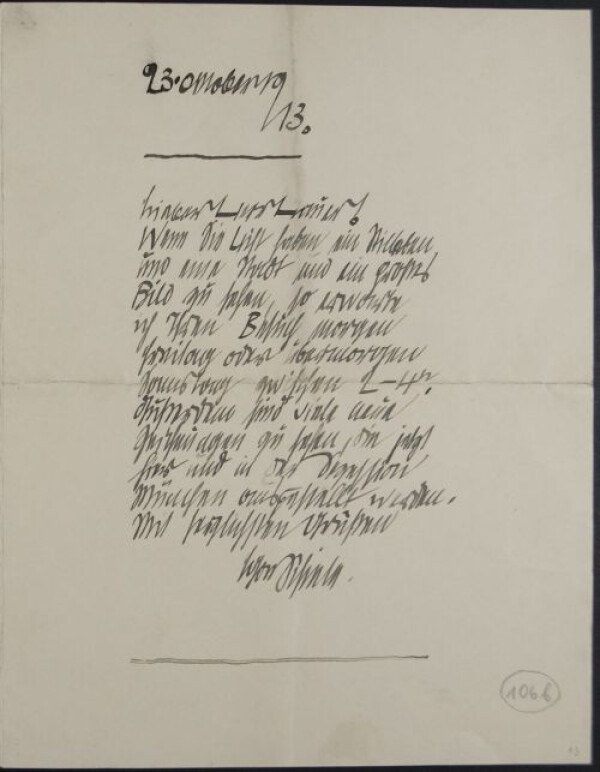 23. Oktober 19
13.
Lieber Herr Hauer!
Wenn Sie Lust haben ein
und eine Stadt und ein großes
Bild zu sehen, so erwarte
ich Ihren Besuch morgen
Freitag oder übermorgen
Samstag zwischen 2–4h.
Außerdem sind viele neue
Zeichnungen zu sehen, die jetzt
hier und in der Sezession
München ausgestellt werden.
Mit herzlichsten Grüßen
Egon Schiele.
106 b